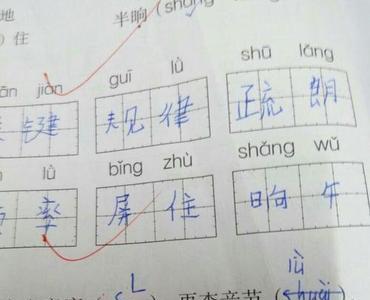 地 半晌（shǎng
）住
jiàn guī lǜ shū lǎng
键 规 律 疏 朗
lǜ bǐng zhù shǎng wǔ
率 屏 住 晌 午
L lǜ
再查音节（